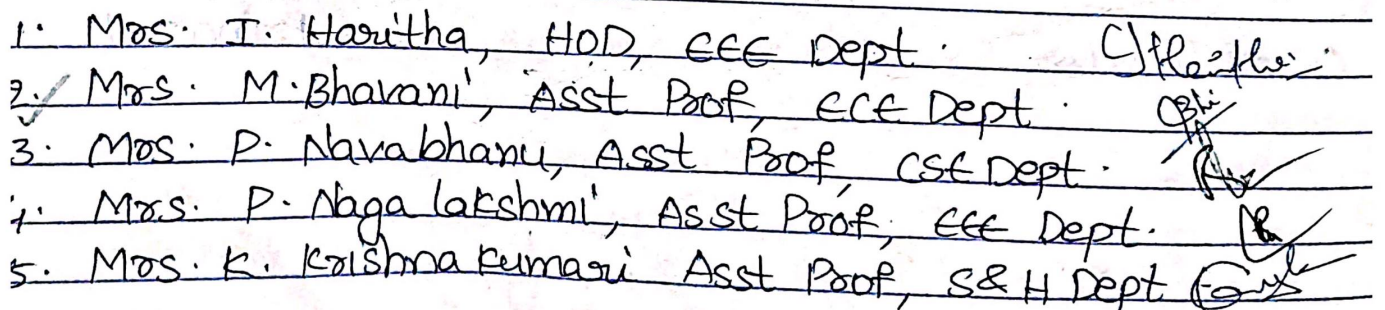 1. Mrs. I. Haritha, HOD, EEE Dept.
2. Mrs. M. Bhavani, Asst Prof, ECE Dept.
3. Mrs. P. Navabhanu, Asst Prof, CSE Dept.
4. Mrs. P. Naga lakshmi, Asst Prof, EEE Dept.
5. Mrs. K. Krishna kumari Asst Prof, S&H Dept